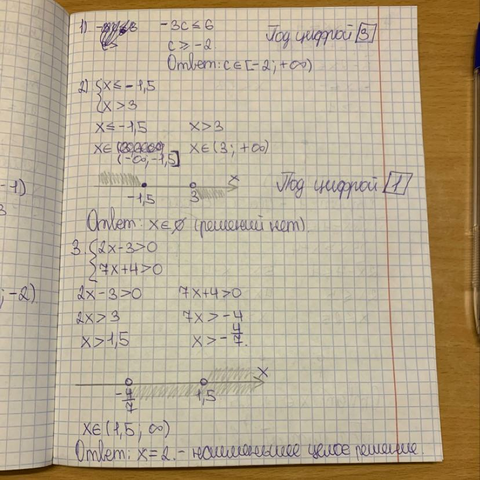 1) -3c ≤ 6
c ≥ -2
Под цифрой 3
Ответ: c ∈ [-2; +∞)
2) { x ≤ -1,5
x > 3
x ≤ -1,5 x > 3
x ∈ (-∞; -1,5] x ∈ (3; +∞)
-1,5 3 x
Под цифрой 1
Ответ: x ∈ ∅ (решений нет)
3. { 2x-3>0
7x+4>0
2x-3>0 7x+4>0
2x>3 7x>-4
x>1,5 x>-4/7.
-4/7 1,5 x
x ∈ (1,5, ∞)
Ответ: x = 2. - наименьшее целое решение.
-1)
3
; -2)